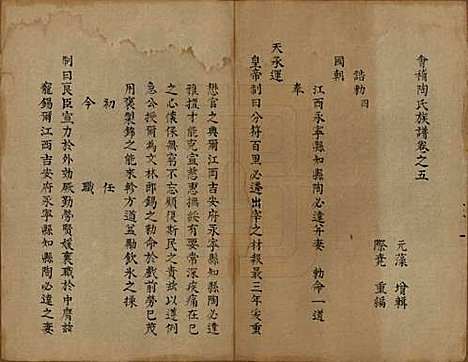 會稽陶氏族譜卷之五
元藻 增輯
際堯 重編
誥勅四
國朝
江西永寧縣知縣陶必達并妻 勅命一道
奉
天承運
皇帝制曰分符百里必遴出宰之材報最三年爰重
懋官之典爾江西吉安府永寧縣知縣陶必達
才猷肆應克宣慈惠撫綏有要常深疾痛之
心後保無窮不忘顧復斯民之責茲以遵例
急公授爾為文林郎錫之勅命於戲前勞已茂
用褒製錦之能來軫方遒益勵飲冰之操
初 任
今 職
制曰良臣宣力於外効厥勤勞賢媛襄職於中膺茲
寵錫爾江西吉安府永寧縣知縣陶必達之妻